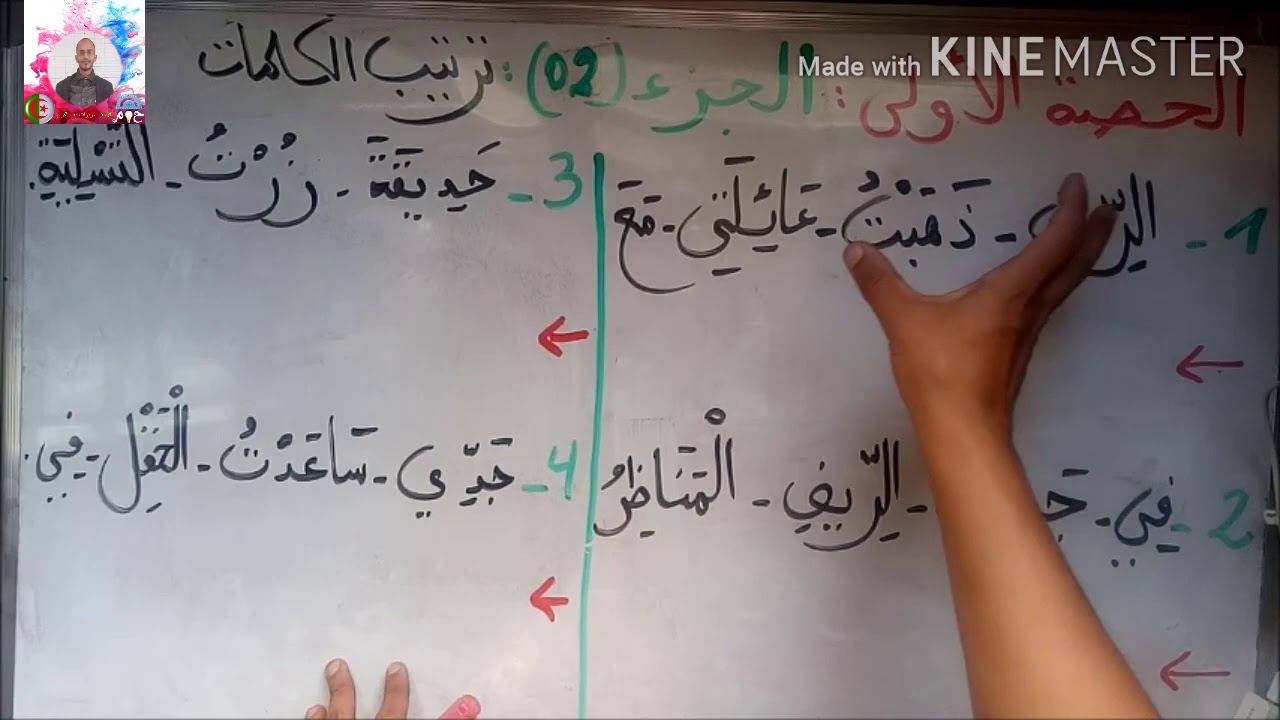 Made with KINEMASTER
الحصة الأولى : الجزء (02) : ترتيب الكلمات
1 - - ذَهَبْتُ - عَائِلَتِي - مَعَ
3 - حَدِيقَةَ - زُرْتُ - التَّسْلِيَةِ.
2 - فِي - - الرِّيفِ - الْمَنَاظِرُ
4 - جَدِّي - سَاعَدْتُ - الْحَقْلِ - فِي.